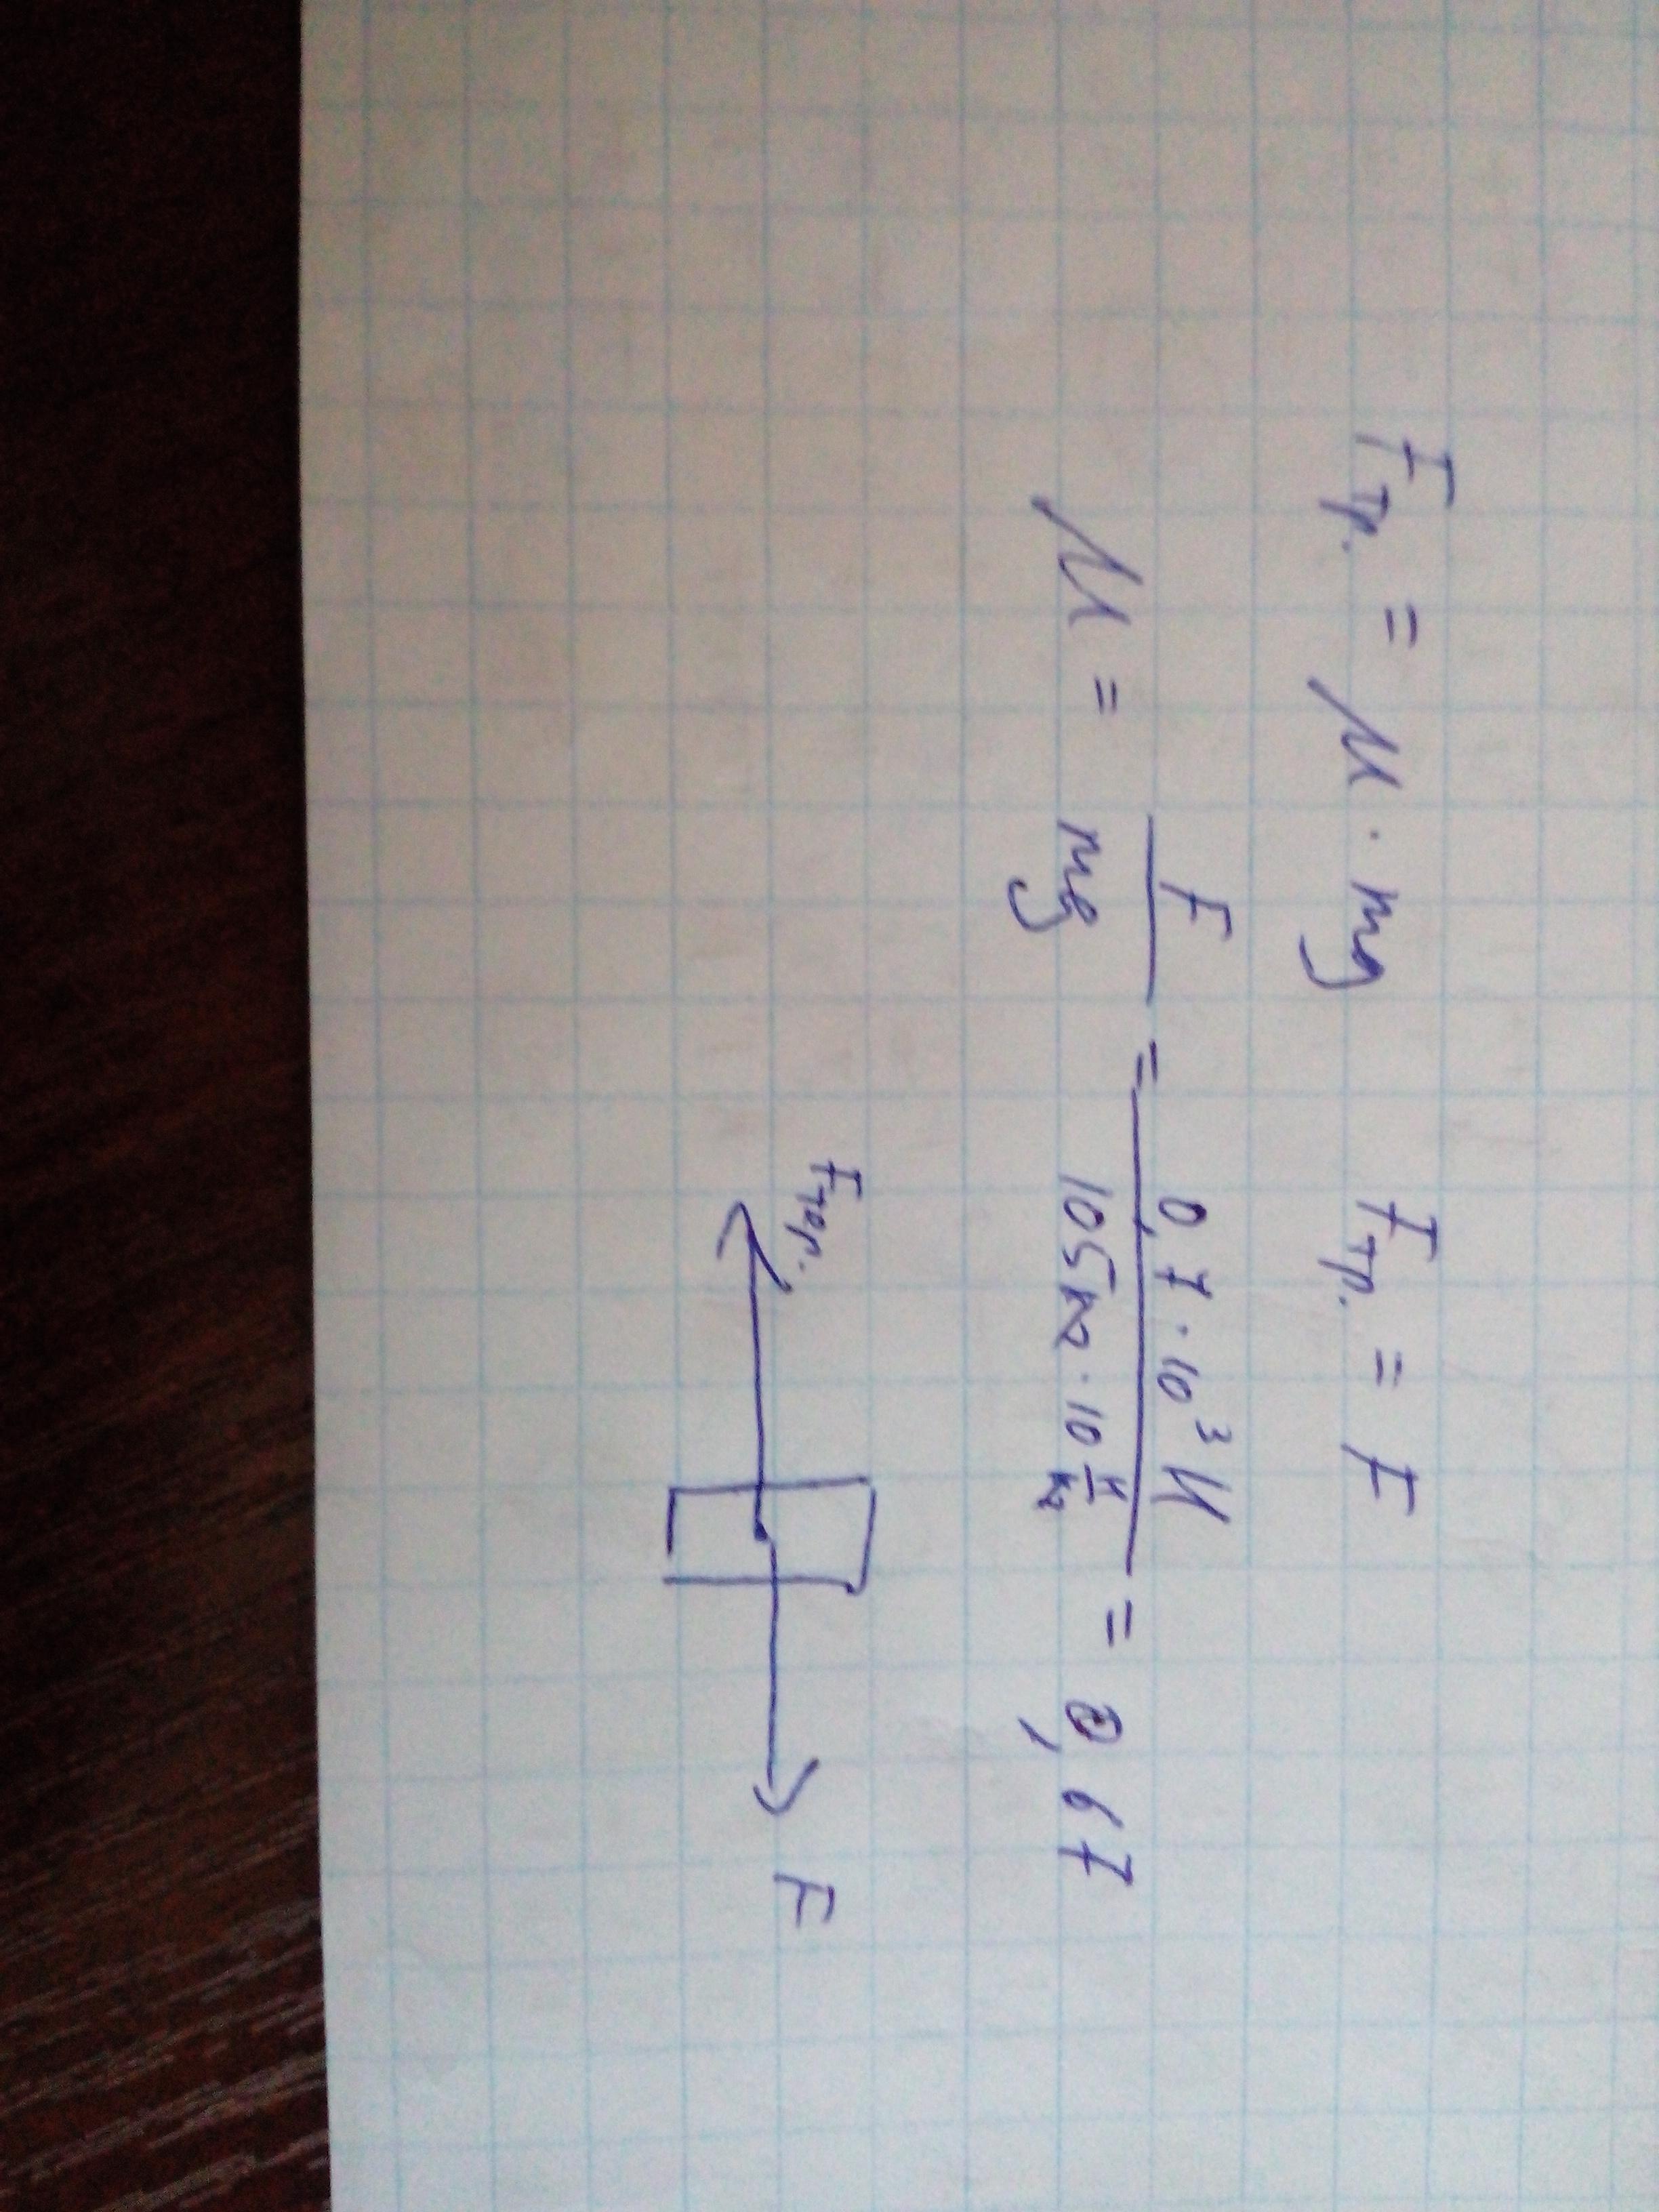 Fтр. = μ · mg Fтр. = F
μ = F/mg = 0,7 · 10³ Н / 105 кг · 10 Н/кг = 0,67
Fтер. F